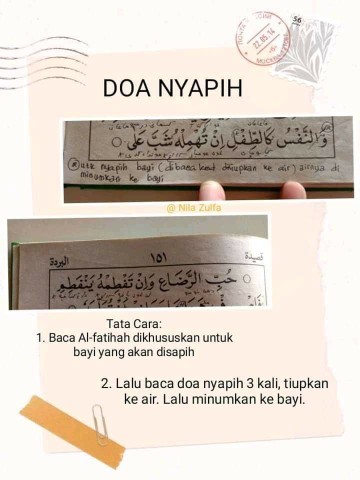 56
22.05.14
DOA NYAPIH
وَالنَّفْسُ كَالطِّفْلِ اِنْ تُهْمِلْهُ شَبَّ عَلٰى
utk nyapih bayi (dibaca lalu ditiupkan ke air) airnya di
minumkan ke bayi
@ Nila Zulfa
البردة ١٥١ قصيدة
حُبِّ الرَّضَاعِ وَاِنْ تَفْطِمْهُ يَنْفَطِمِ
Tata Cara:
1. Baca Al-fatihah dikhususkan untuk
bayi yang akan disapih
2. Lalu baca doa nyapih 3 kali, tiupkan
ke air. Lalu minumkan ke bayi.